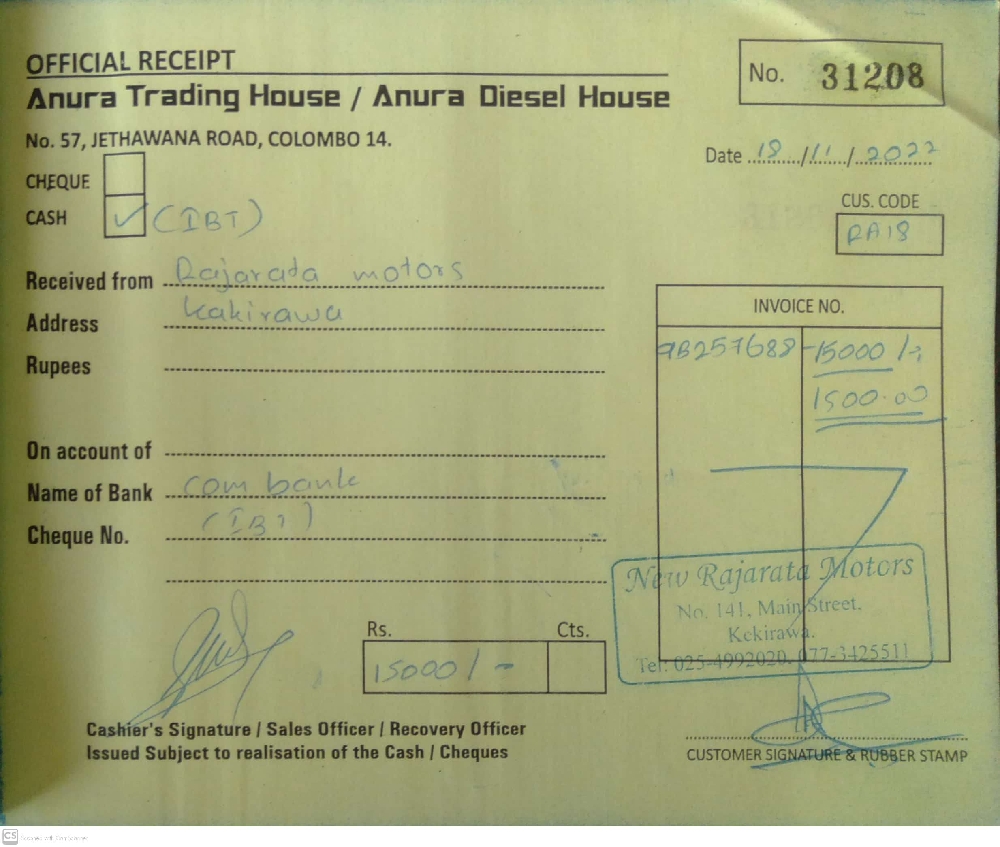 OFFICIAL RECEIPT
No. 31208
Anura Trading House / Anura Diesel House
No. 57, JETHAWANA ROAD, COLOMBO 14.
Date 18/11/2022
CHEQUE
CASH ✓ (IBT)
CUS. CODE
RA18
Received from Rajarata motors
Address Kakirawa
Rupees
INVOICE NO.
9B257688 - 15000 /-
1500.00
On account of
Name of Bank com bank
Cheque No. (IBT)
New Rajarata Motors
No. 141, Main Street,
Kekirawa.
Tel: 025-4992020, 077-3425511
Rs. Cts.
15000/-
Cashier's Signature / Sales Officer / Recovery Officer
Issued Subject to realisation of the Cash / Cheques
CUSTOMER SIGNATURE & RUBBER STAMP
CS